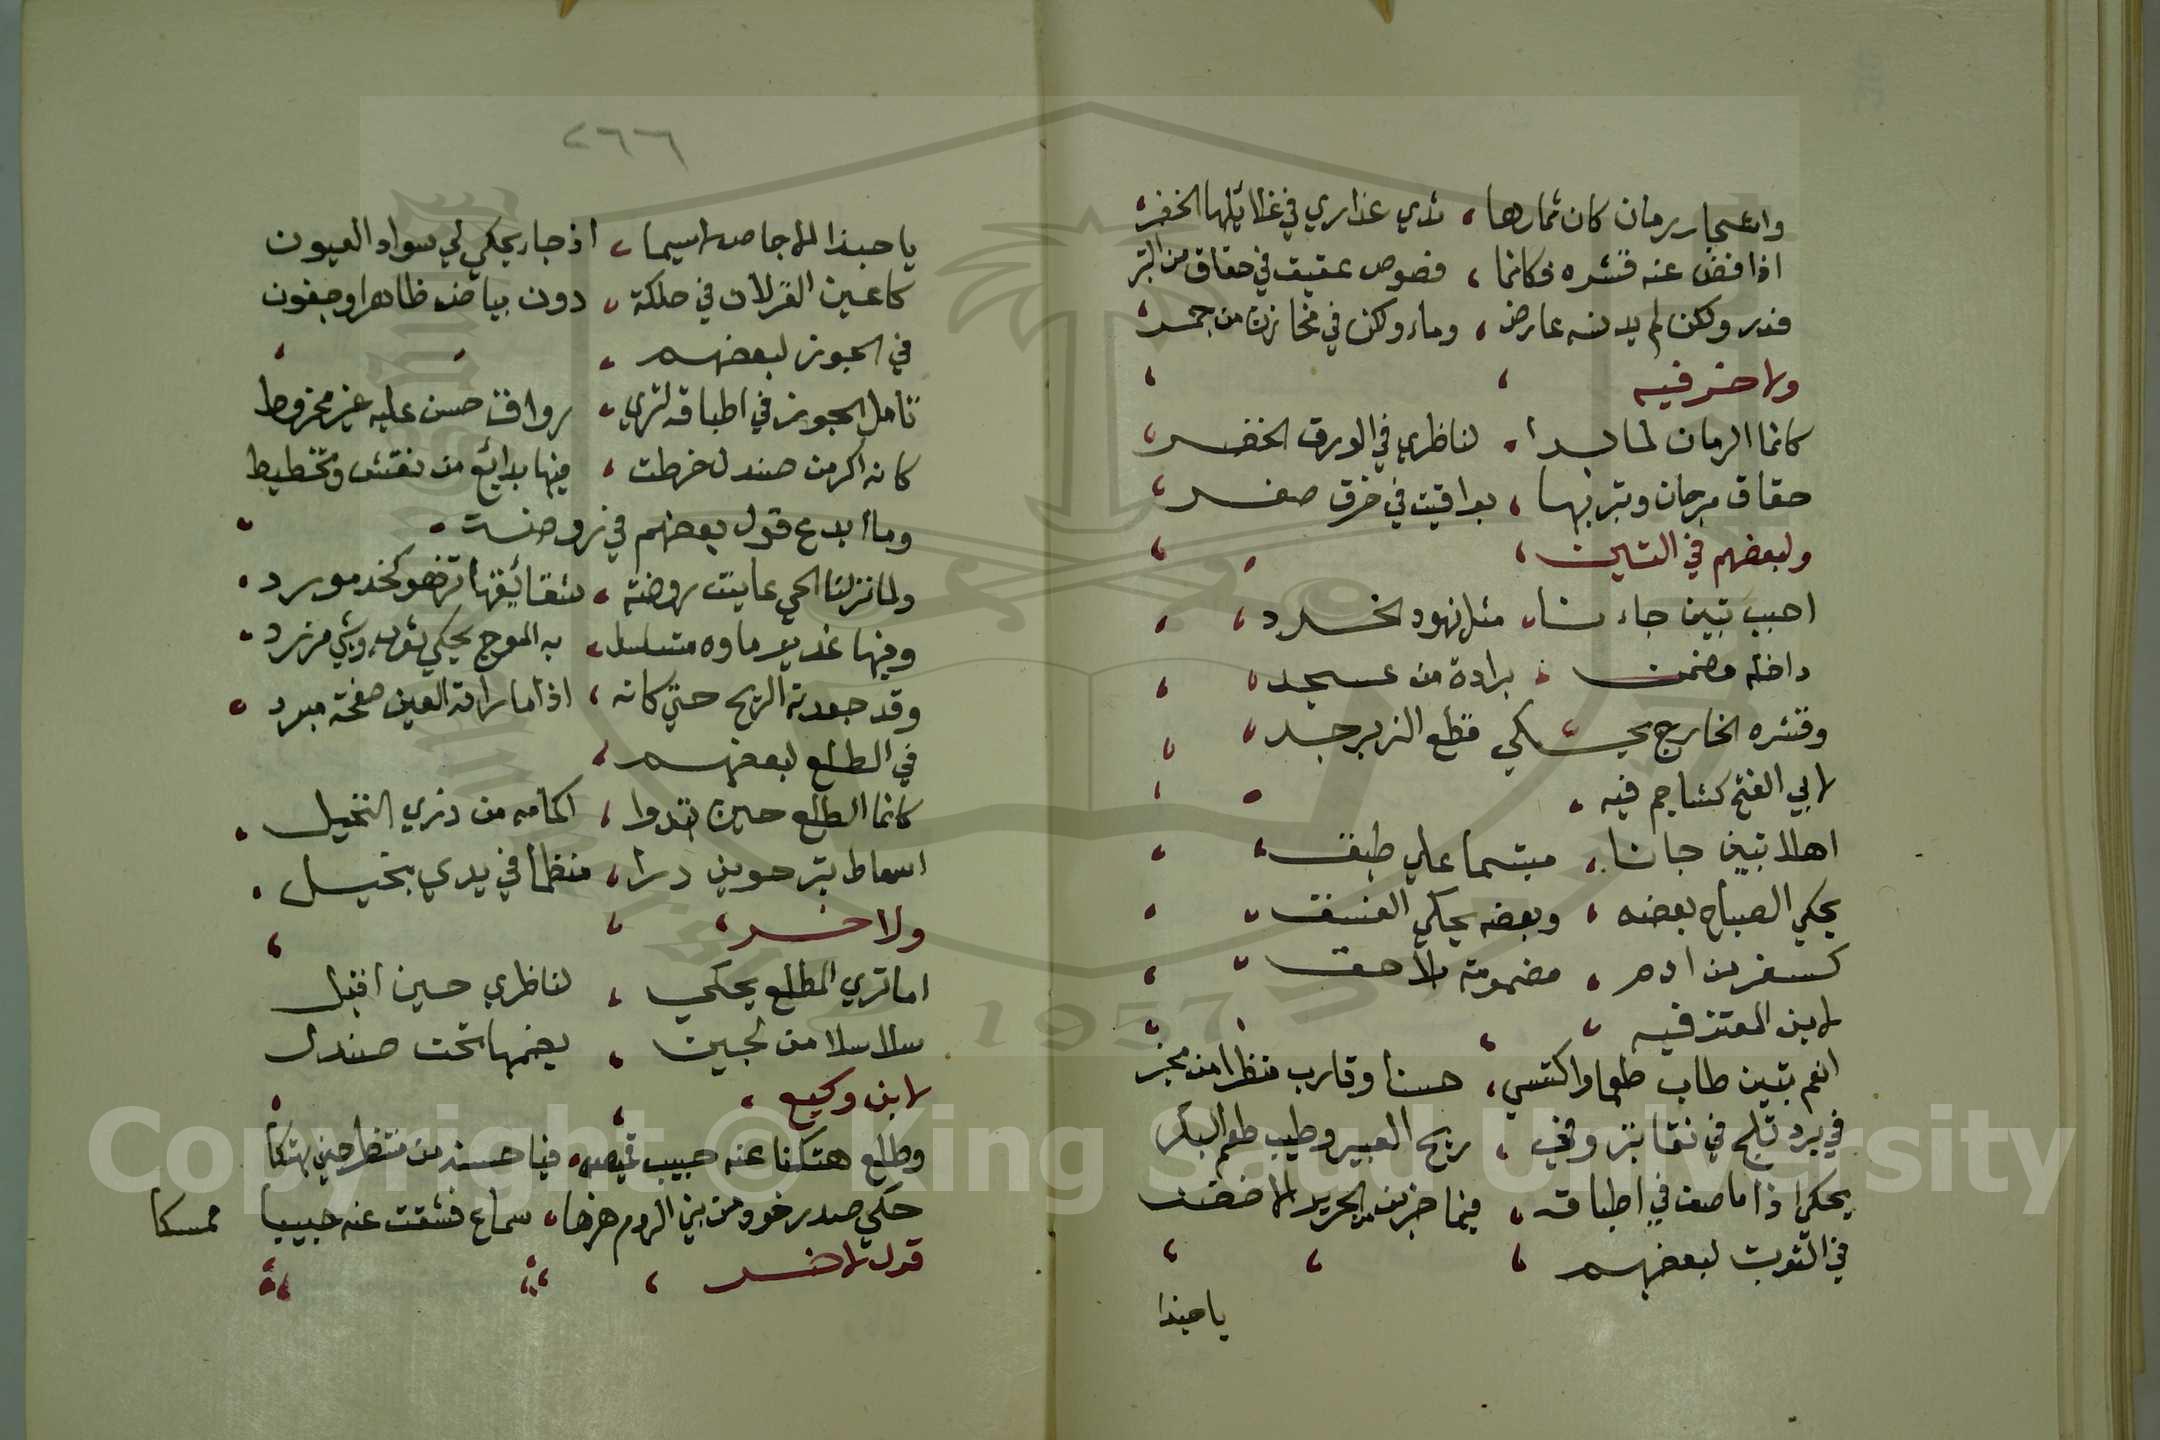 واشجار رمان كان ثمارها ، ثدي عذاري في غلايلها الخضر ،
اذا فض عنه قشره فكانما ، فصوص عقيق في حقاق من التبر
فدر ولكن لم يدنسه عارض ، وماء ولكن في مخازن من جمر ،
ولاخر فيه
كانما الرمان لما بدا ، لناظري في الورق الخضر
حقاق مرجان وتبر بها ، يواقيت في خرق صفر
ولبعضهم في التين ،
احبب بتين جاءنا ، مثل نهود الخرد ،
داخله مضمن ، برادة من عسجد ،
وقشره الخارج يحكي قطع الزبرجد ،
لابي الفتح كشاجم فيه ،
اهلا بتين جانا ، مبتسما علي طبق ،
يحكي الصباح بعضه ، وبعضه يحكي الغسق ،
كسفر من ادم ، مضمومة بلا حلق ،
لابن المعتز فيه
انعم بتين طاب طعما واكتسي ، حسنا وقارب منظرا من مخبر
في برد ثلج في نقا تبر وفي ، ريح العبير وطيب طعم السكر
يحكي اذا ما صف في اطباقه ،
في التوت لبعضهم
يا حبذا
٢٦٦
يا حبذا الاجاص لاسيما ، اذ جاء يحكي لي سواد العيون
كاعين الغزلان في حلكة ، دون بياض ظاهر او جفون
في الجوز لبعضهم ،
تامل الجوز في اطباقه لتري ، رواق حسن عليه غير مخروط
كانه اكر من صندل خرطت ، فيها بدائع من نقش وتخطيط
وما ابدع قول بعضهم في روضة ،
ولما نزلنا الحي عاينت روضة ، شقائقها تزهو كخد مورد ،
وفيها غدير ماوه متسلسل ، به الموج يحكي ثوب وشي مزرد ،
وقد جعدته الريح حتي كانه ، اذا ما راته العين صفحة مبرد ،
في الطلع لبعضهم ،
كانما الطلع حين تبدوا ، اكمامه من ذري النخيل ،
اسماط تبر حوين درا ، منظما في يدي بخيل ،
ولاخر ،
اما تري الطلع يحكي ، لناظري حين اقبل
سلاسلا من لجين ، يضمها تحت صندل
لابن وكيع ،
وطلع هتكنا عنه جيب قميصه ، فيا حسنه من منظر حين هتكا
حكي صدر خود من بني الروم هزها ، سماع فشقت عنه جيبا ممسكا
قول لاخر ،